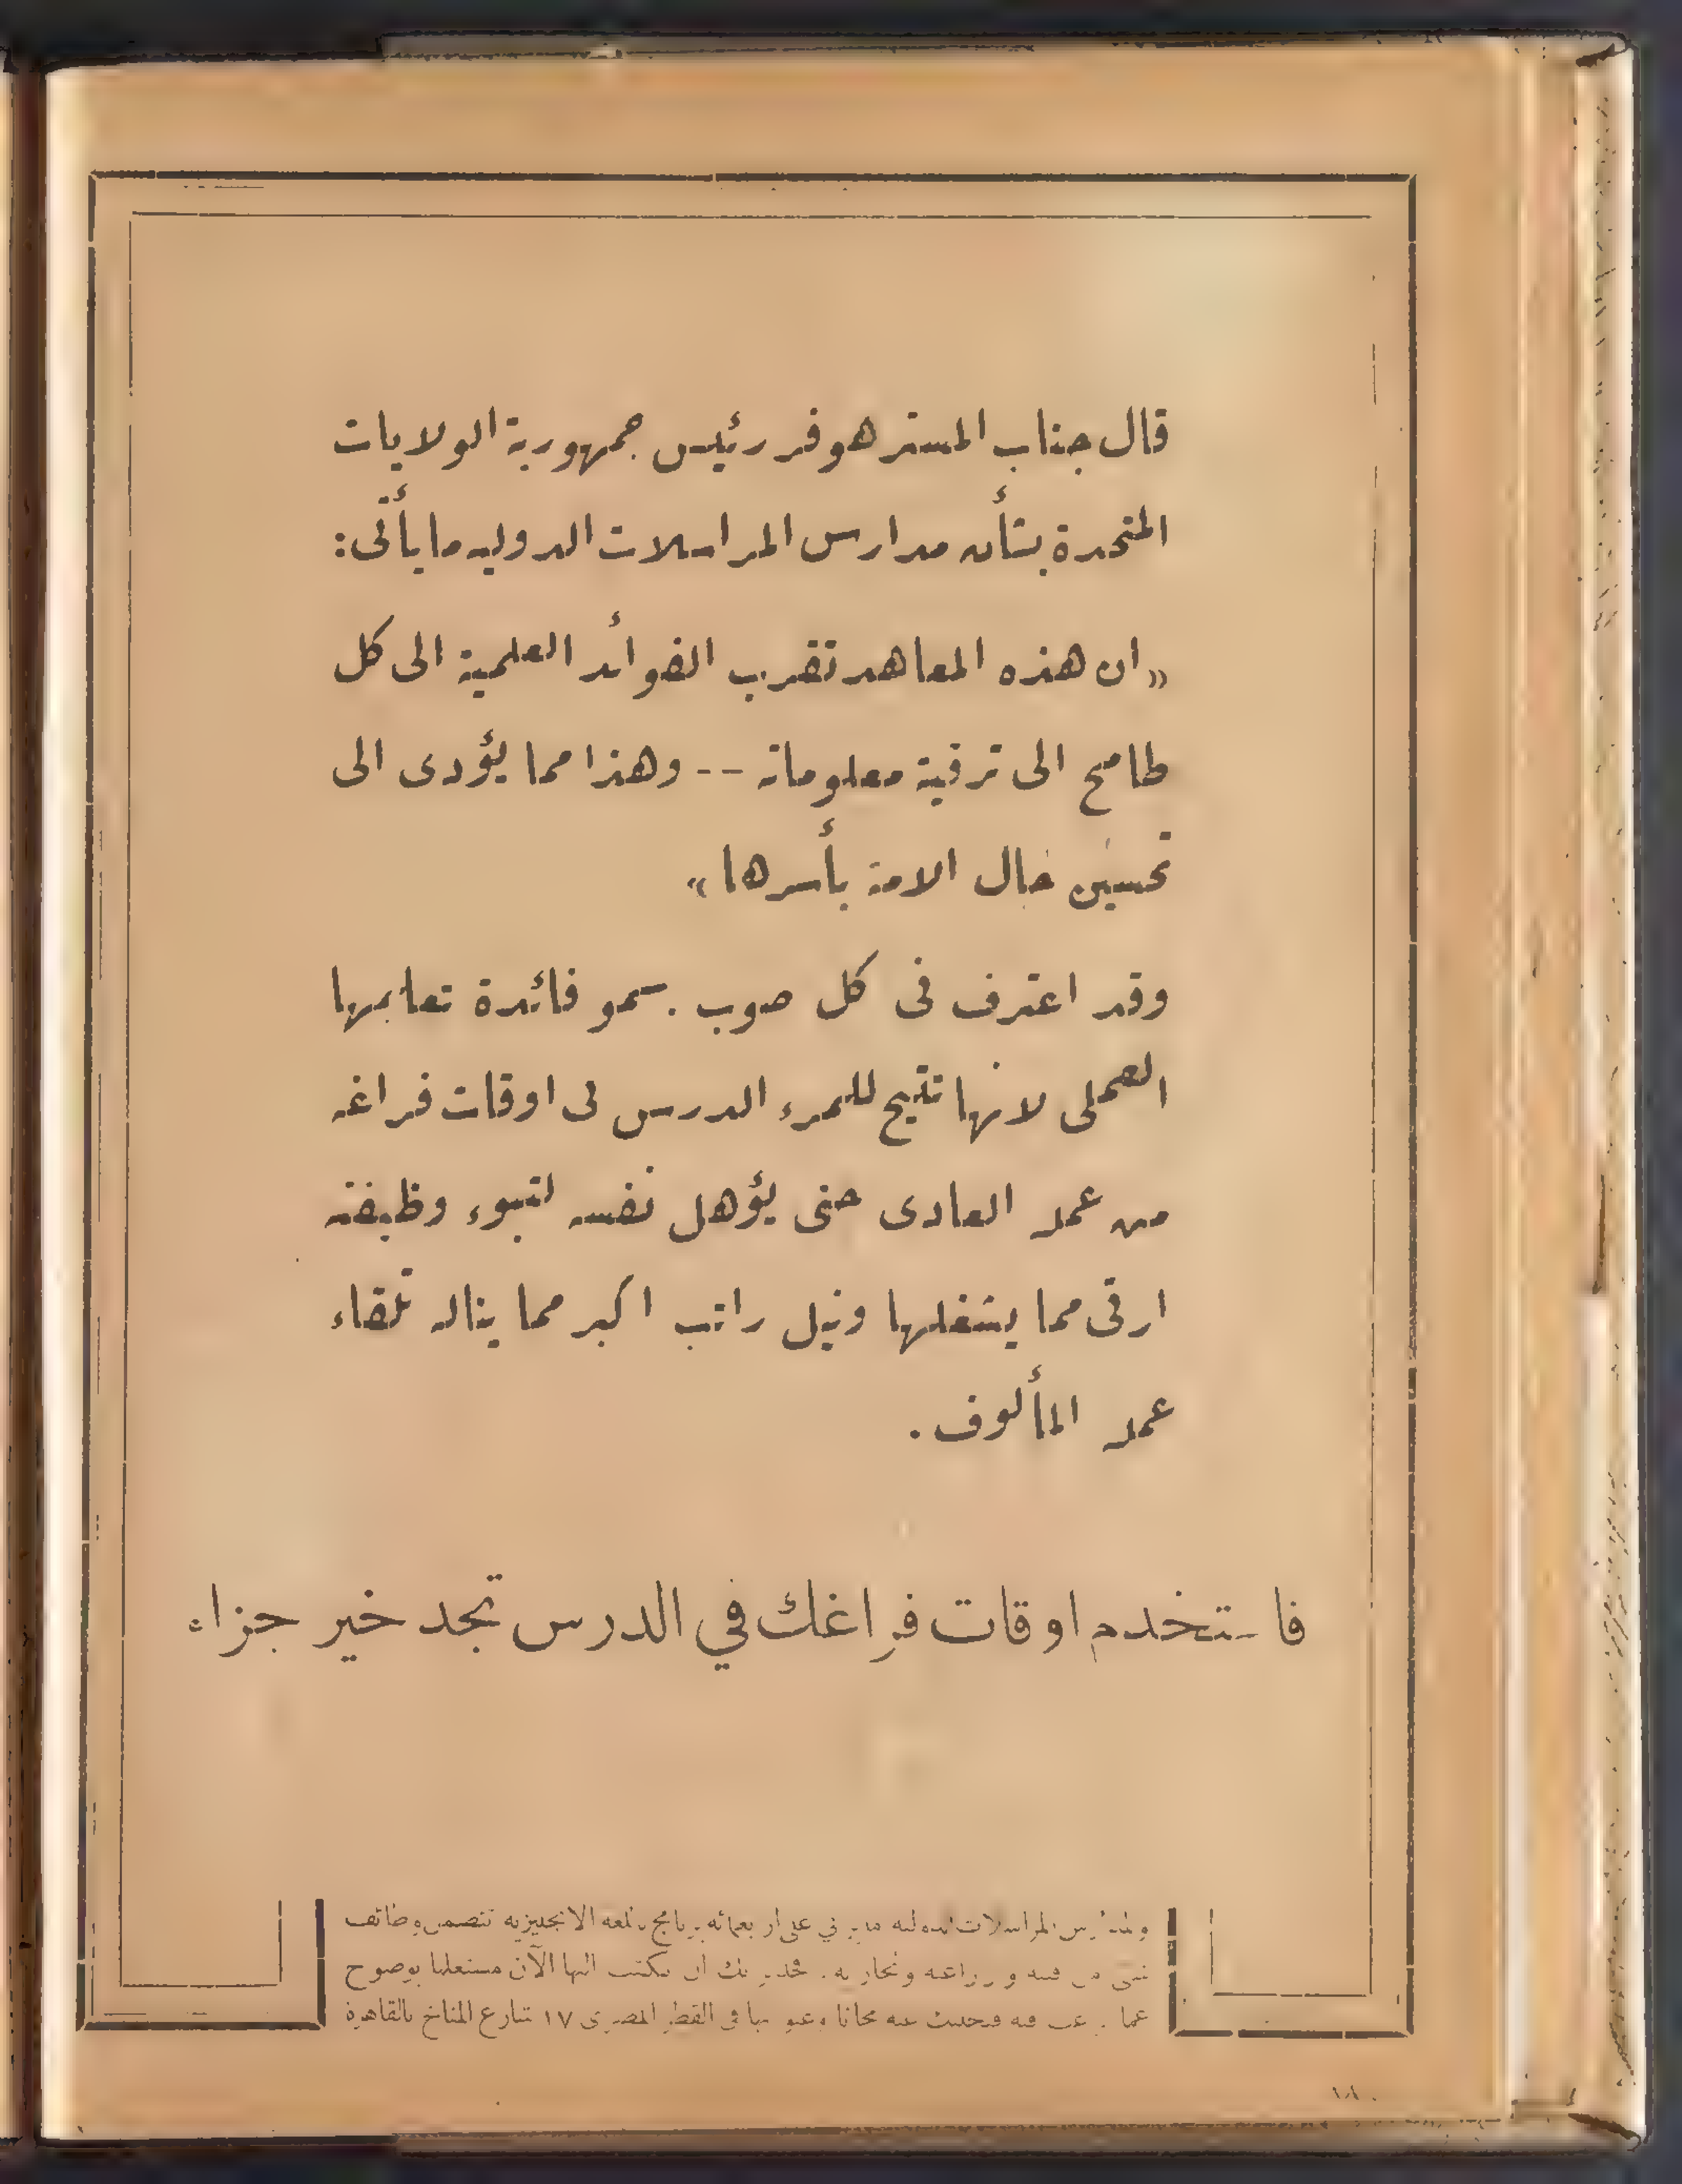 قال جناب المستر هوفر رئيس جمهورية الولايات
المتحدة بشأن مدارس المراسلات الدولية ما يأتى:
«ان هذه المعاهد تقرب الفوائد العلمية الى كل
طامح الى ترقية معلوماته -- وهذا مما يؤدى الى
تحسين حال الامة بأسرها»
وقد اعترف فى كل صوب بسمو فائدة تعاليمها
العملى لانها تتيح للمرء الدرس فى اوقات فراغه
من عمله العادى حتى يؤهل نفسه لتبوء وظيفته
ارقى مما يشغلها ونيل راتب اكبر مما يناله تلقاء
عمله المألوف .
فاستخدم اوقات فراغك في الدرس تجد خير جزاء
ولمدارس المراسلات الدولية على اربعمائة برنامج باللغة الانجليزية تتضمن وظائف
شتى من وزراعية وتجارية . فجدير بك ان تكتب اليها الآن مستعلما بوضوح
عما ترغب فيه فتجيبك عنه مجانا وعنوانها فى القطر المصرى ١٧ شارع المناخ بالقاهرة